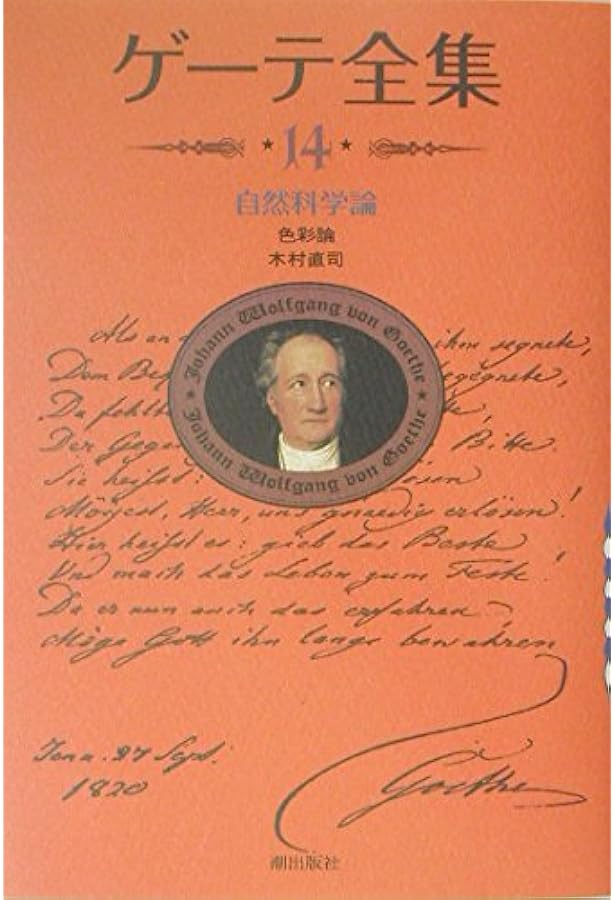 ゲーテ全集
14
自然科学論
色彩論
木村直司
Johann Wolfgang von Goethe
Johann Wolfgang von Goethe
Als an ihm segnete,
Dem gegnete,
Da fehlt
Der Gegen Bitte.
Sie heißt: lösen
Mögest, Herr, uns gnaedig erlösen!
Hier heißt es: gieb das Beste
Und mach das Leben zum Feste!
Da er nun auch das erfahren
Möge Gott ihn lange bewahren
Jena. 27 Sept.
1820
Goethe
潮出版社